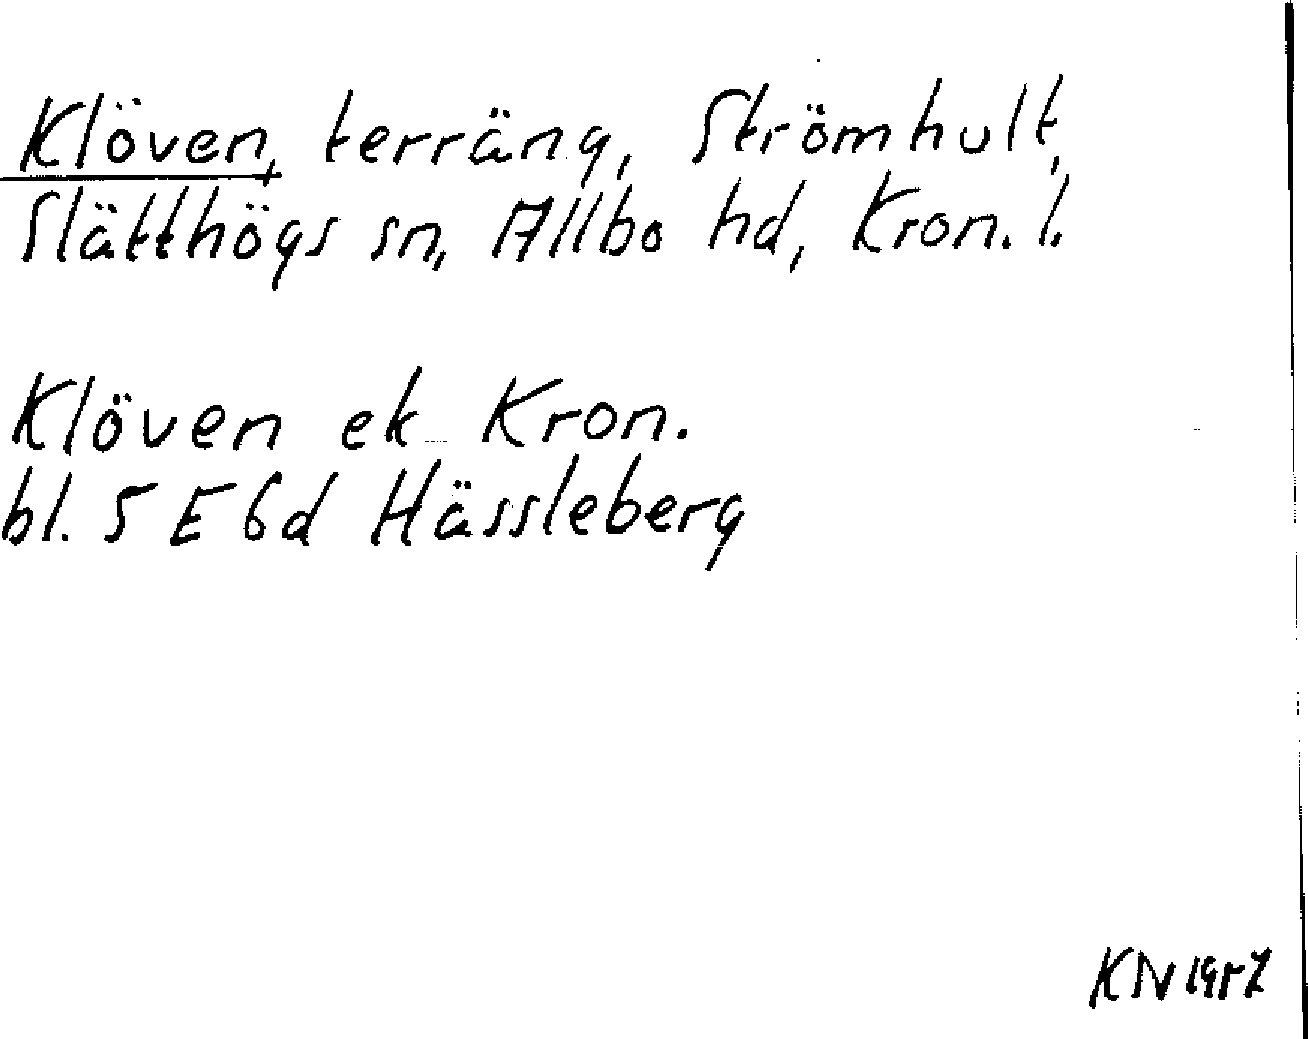 Klöven, terräng, Strömhult,
Slätthögs sn, Allbo hd, Kron. l.
Klöven ek Kron.
bl. 5 E 6d Hässleberg
KN